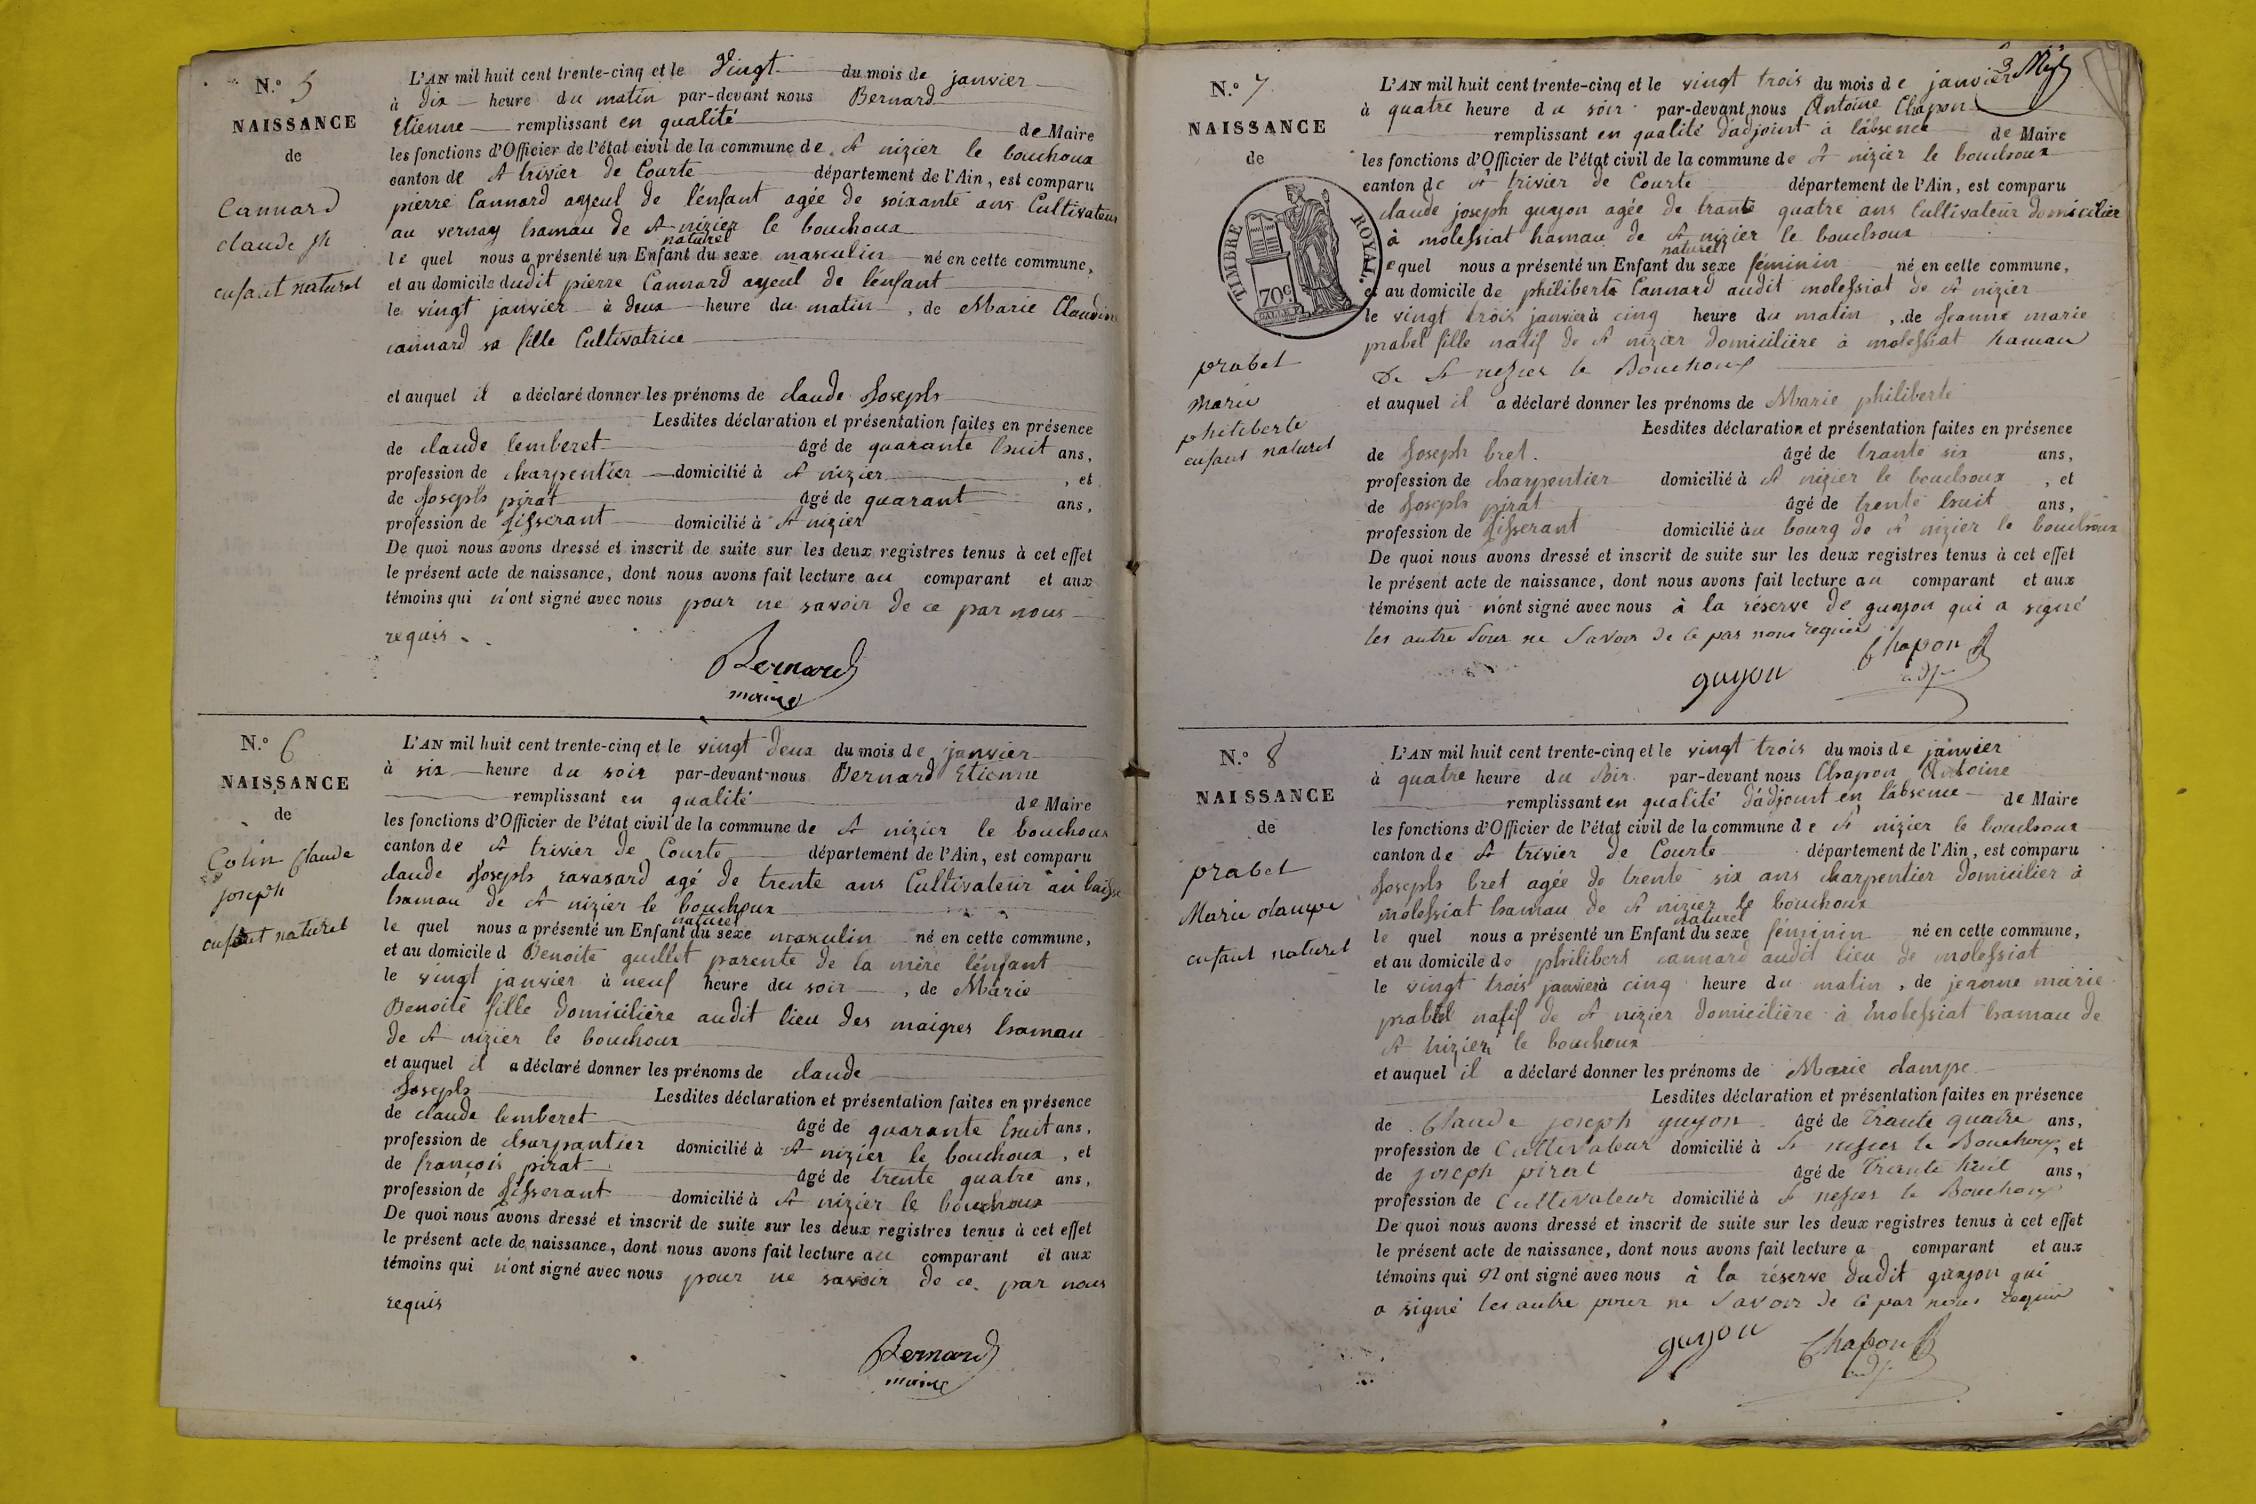 N.° 5
NAISSANCE
de
Cannard
claude jh
enfant naturel
L'AN mil huit cent trente-cinq et le Vingt du mois de janvier
à dix heure du matin par-devant nous Bernard
Etienne remplissant en qualité de Maire
les fonctions d'Officier de l'état civil de la commune de St nizier le bouchoux
canton de St trivier de Courte département de l'Ain, est comparu
pierre Cannard ayeul de l'enfant agée de soixante ans Cultivateur
au vernay hamau de St nizier le bouchoux
naturel
le quel nous a présenté un Enfant du sexe masculin né en cette commune,
et au domicile dudit pierre Cannard ayeul de l'enfant
le vingt janvier à deux heure du matin, de Marie Claudine
cannard sa fille Cultivatrice
et auquel il a déclaré donner les prénoms de claude Joseph
Lesdites déclaration et présentation faites en présence
de claude lemberet âgé de quarante huit ans,
profession de charpentier domicilié à St nizier, et
de Joseph pirat âgé de quarant ans,
profession de tisserant domicilié à St nizier
De quoi nous avons dressé et inscrit de suite sur les deux registres tenus à cet effet
le présent acte de naissance, dont nous avons fait lecture au comparant et aux
témoins qui n'ont signé avec nous pour ne savoir de ce par nous
requis.
Bernard
maire
N.° 6
NAISSANCE
de
Colin Claude
joseph
enfant naturel
L'AN mil huit cent trente-cinq et le vingt deux du mois de janvier
à six heure du soir par-devant nous Bernard Etienne
remplissant en qualité de Maire
les fonctions d'Officier de l'état civil de la commune de St nizier le bouchoux
canton de St trivier de Courte département de l'Ain, est comparu
claude Joseph ravasard agé de trente ans Cultivateur au
hamau de St nizier le bouchoux
naturel
le quel nous a présenté un Enfant du sexe masculin né en cette commune,
et au domicile d Benoite guillet parente de la mère l'enfant
le vingt janvier à neuf heure du soir, de Marie
Benoite fille domicilière audit lieu des maigres hamau
de St nizier le bouchoux
et auquel il a déclaré donner les prénoms de claude
Joseph Lesdites déclaration et présentation faites en présence
de claude lemberet âgé de quarante huit ans,
profession de charpantier domicilié à St nizier le bouchoux, et
de françois pirat âgé de trente quatre ans,
profession de tisserant domicilié à St nizier le bouchoux
De quoi nous avons dressé et inscrit de suite sur les deux registres tenus à cet effet
le présent acte de naissance, dont nous avons fait lecture au comparant et aux
témoins qui n'ont signé avec nous pour ne savoir de ce par nous
requis
Bernard
maire
N.° 7
NAISSANCE
de
TIMBRE ROYAL.
70c
prabel
Marie
philiberte
enfant naturel
L'AN mil huit cent trente-cinq et le vingt trois du mois de janvier
à quatre heure du soir par-devant nous Antoine Chapon
remplissant en qualité d'adjoint à l'absence de Maire
les fonctions d'Officier de l'état civil de la commune de St nizier le bouchoux
canton de St trivier de Courte département de l'Ain, est comparu
claude joseph guyon agée de trante quatre ans Cultivateur domicilier
à molessiat hamau de St nizier le bouchoux
naturel
equel nous a présenté un Enfant du sexe féminin né en cette commune,
et au domicile de philiberte Cannard audit molessiat de St nizier
le vingt trois janvier à cinq heure du matin, de Jeanne marie
prabel fille natif de St nizier domicilière à molessiat hamau
de St nizier le Bouchoux
et auquel il a déclaré donner les prénoms de Marie philiberte
Lesdites déclaration et présentation faites en présence
de Joseph bret. âgé de trante six ans,
profession de charpentier domicilié à St nizier le bouchoux, et
de Joseph pirat âgé de trente huit ans,
profession de tisserant domicilié àu bourg de St nizier le bouchoux
De quoi nous avons dressé et inscrit de suite sur les deux registres tenus à cet effet
le présent acte de naissance, dont nous avons fait lecture au comparant et aux
témoins qui n'ont signé avec nous à la réserve de guyon qui a signé
les autre pour ne Savoir de ce par nous requis
guyon Chapon
adj
N.° 8
NAISSANCE
de
prabel
Marie dampe
enfant naturel
L'AN mil huit cent trente-cinq et le vingt trois du mois de janvier
à quatre heure du soir par-devant nous Chapon Antoine
remplissant en qualité d'adjoint en l'absence de Maire
les fonctions d'Officier de l'état civil de la commune de St nizier le bouchoux
canton de St trivier de Courte département de l'Ain, est comparu
Joseph bret agée de trente six ans charpentier domicilier à
molessiat hamau de St nizier le bouchoux
naturel
le quel nous a présenté un Enfant du sexe féminin né en cette commune,
et au domicile de philibert cannard audit lieu de molessiat
le vingt trois janvier à cinq heure du matin, de jeanne marie
prabel natif de St nizier domicilière à molessiat hamau de
St nizier le bouchoux
et auquel il a déclaré donner les prénoms de Marie dampe
Lesdites déclaration et présentation faites en présence
de Claude joseph guyon âgé de Trante quatre ans,
profession de Cultivateur domicilié à St nizier le Bouchoux, et
de joseph pirat âgé de Trente huit ans,
profession de Cultivateur domicilié à St nizier le Bouchoux
De quoi nous avons dressé et inscrit de suite sur les deux registres tenus à cet effet
le présent acte de naissance, dont nous avons fait lecture a comparant et aux
témoins qui n ont signé avec nous à la réserve dudit guyon qui
a signé les autre pour ne Savoir de ce par nous requis
guyon Chapon
adj